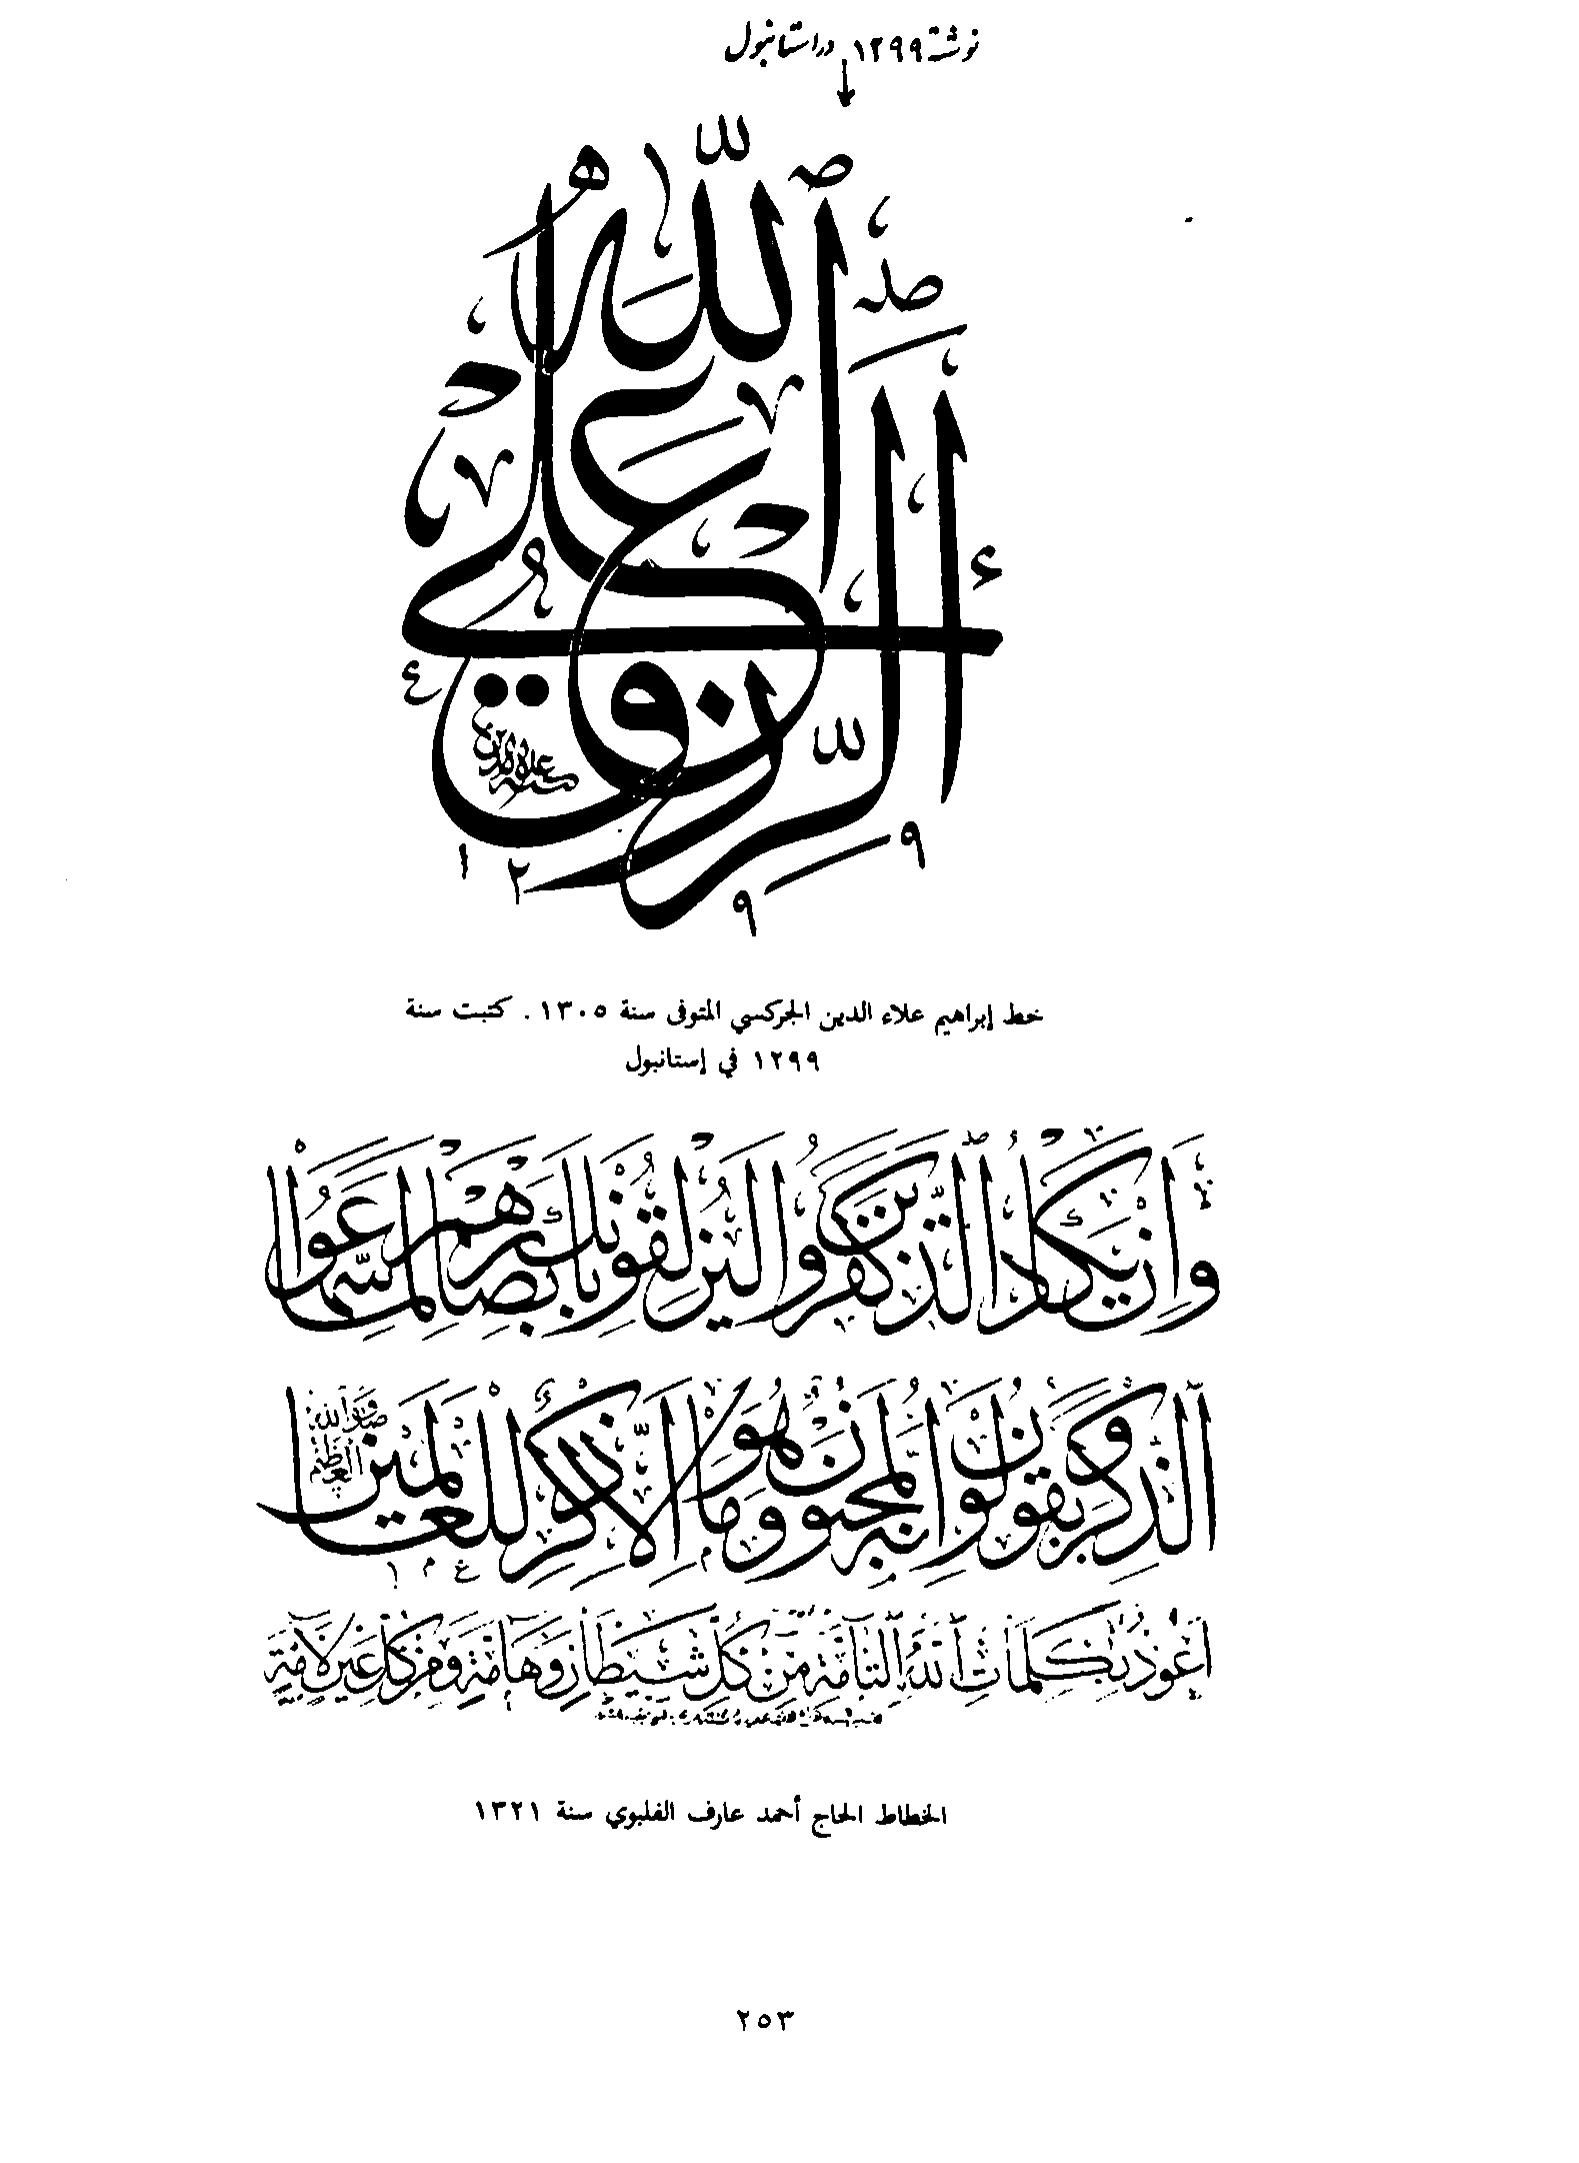 نوشتة ١٢٩٩ در استانبول
الرزق على الله
١٢٩٩
خط إبراهيم علاء الدين الجركسي المتوفى سنة ١٣٠٥. كتبت سنة
١٢٩٩ في إستانبول
وَإِنْ يَكَادُ الَّذِينَ كَفَرُوا لَيُزْلِقُونَكَ بِأَبْصَارِهِمْ لَمَّا سَمِعُوا
الذِّكْرَ وَيَقُولُونَ إِنَّهُ لَمَجْنُونٌ وَمَا هُوَ إِلَّا ذِكْرٌ لِلْعَالَمِينَ
صدق الله العظيم
أَعُوذُ بِكَلِمَاتِ اللَّهِ التَّامَّةِ مِنْ كُلِّ شَيْطَانٍ وَهَامَّةٍ وَمِنْ كُلِّ عَيْنٍ لَامَّةٍ
الخطاط الحاج أحمد عارف الفلبوي سنة ١٣٢١
٢٥٣